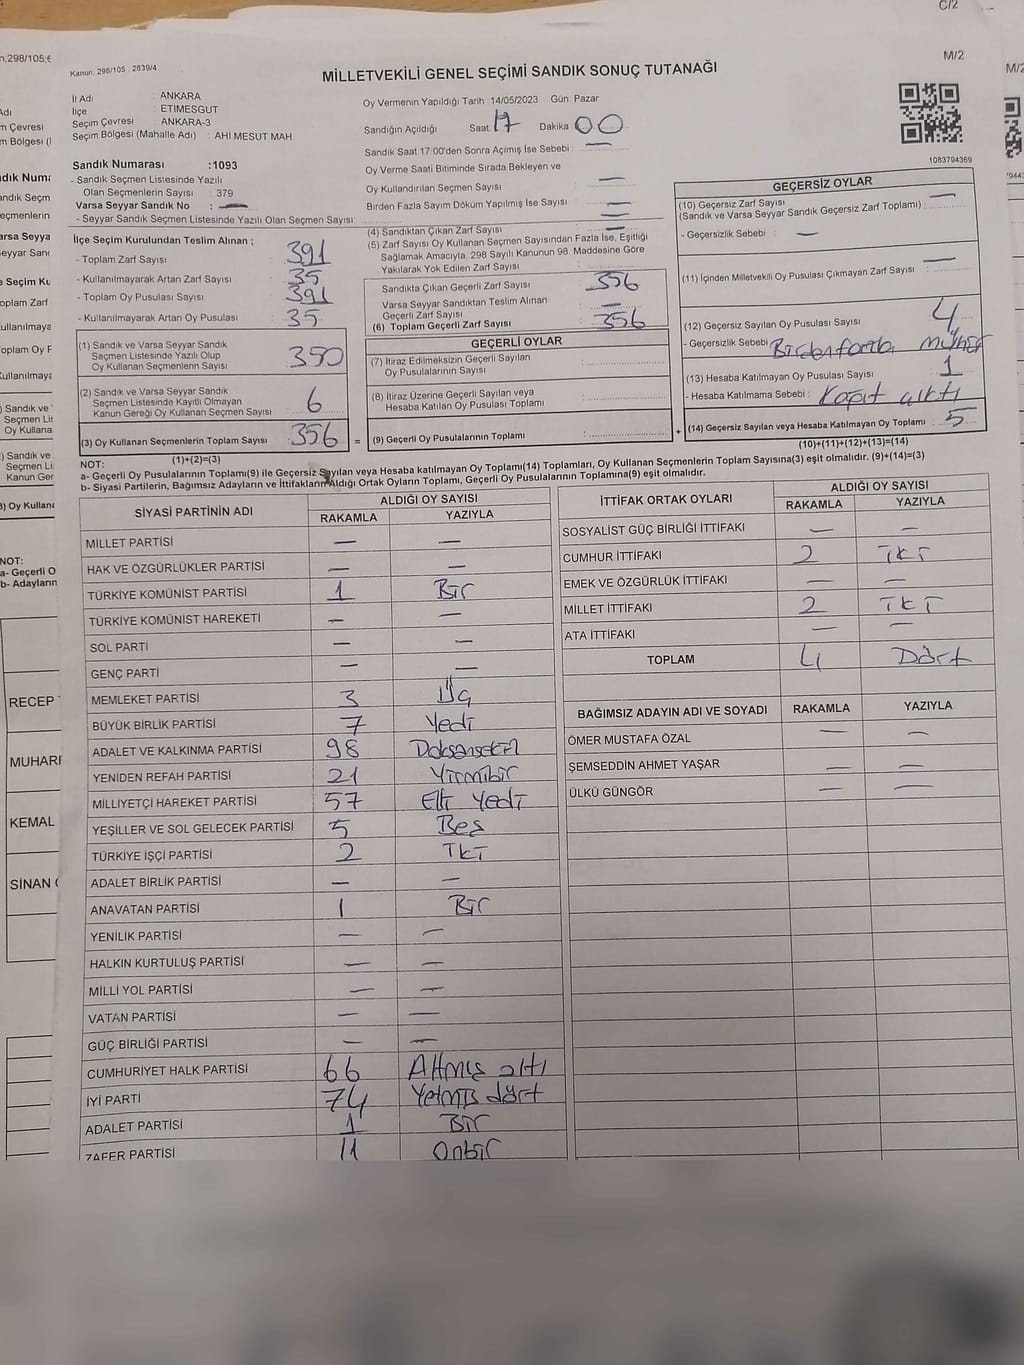 C/2
Kanun, 298/105 , 2839/4
M/2
MİLLETVEKİLİ GENEL SEÇİMİ SANDIK SONUÇ TUTANAĞI
İl Adı ANKARA
İlçe ETİMESGUT
Seçim Çevresi : ANKARA-3
Seçim Bölgesi (Mahalle Adı) : AHİ MESUT MAH
Sandık Numarası :1093
- Sandık Seçmen Listesinde Yazılı
Olan Seçmenlerin Sayısı : 379
Varsa Seyyar Sandık No : —
- Seyyar Sandık Seçmen Listesinde Yazılı Olan Seçmen Sayısı
Oy Vermenin Yapıldığı Tarih :14/05/2023 Gün: Pazar
Sandığın Açıldığı Saat: 17 Dakika 00
Sandık Saat 17:00'den Sonra Açımış İse Sebebi : —
Oy Verme Saati Bitiminde Sırada Bekleyen ve
Oy Kullandırılan Seçmen Sayısı —
Birden Fazla Sayım Döküm Yapılmış İse Sayısı —
1083794369
İlçe Seçim Kurulundan Teslim Alınan ;
- Toplam Zarf Sayısı 391
- Kullanılmayarak Artan Zarf Sayısı 35
- Toplam Oy Pusulası Sayısı 391
- Kullanılmayarak Artan Oy Pusulası 35
(1) Sandık ve Varsa Seyyar Sandık
Seçmen Listesinde Yazılı Olup
Oy Kullanan Seçmenlerin Sayısı 350
(2) Sandık ve Varsa Seyyar Sandık
Seçmen Listesinde Kayıtlı Olmayan
Kanun Gereği Oy Kullanan Seçmen Sayısı 6
(3) Oy Kullanan Seçmenlerin Toplam Sayısı 356
(1)+(2)=(3)
(4) Sandıktan Çıkan Zarf Sayısı —
(5) Zarf Sayısı Oy Kullanan Seçmen Sayısından Fazla İse, Eşitliği
Sağlamak Amacıyla, 298 Sayılı Kanunun 98. Maddesine Göre
Yakılarak Yok Edilen Zarf Sayısı
Sandıkta Çıkan Geçerli Zarf Sayısı 356
Varsa Seyyar Sandıktan Teslim Alınan
Geçerli Zarf Sayısı —
(6) Toplam Geçerli Zarf Sayısı 356
GEÇERLİ OYLAR
(7) İtiraz Edilmeksizin Geçerli Sayılan
Oy Pusulalarının Sayısı
(8) İtiraz Üzerine Geçerli Sayılan veya
Hesaba Katılan Oy Pusulası Toplamı
= (9) Geçerli Oy Pusulalarının Toplamı
GEÇERSİZ OYLAR
(10) Geçersiz Zarf Sayısı —
(Sandık ve Varsa Seyyar Sandık Geçersiz Zarf Toplamı)
- Geçersizlik Sebebi : —
(11) İçinden Milletvekili Oy Pusulası Çıkmayan Zarf Sayısı —
(12) Geçersiz Sayılan Oy Pusulası Sayısı 4
- Geçersizlik Sebebi : Birden fazla mühür
(13) Hesaba Katılmayan Oy Pusulası Sayısı 1
- Hesaba Katılmama Sebebi :
+ (14) Geçersiz Sayılan veya Hesaba Katılmayan Oy Toplamı 5
(10)+(11)+(12)+(13)=(14)
NOT:
a- Geçerli Oy Pusulalarının Toplamı(9) ile Geçersiz Sayılan veya Hesaba katılmayan Oy Toplamı(14) Toplamları, Oy Kullanan Seçmenlerin Toplam Sayısına(3) eşit olmalıdır. (9)+(14)=(3)
b- Siyasi Partilerin, Bağımsız Adayların ve İttifakların Aldığı Ortak Oyların Toplamı, Geçerli Oy Pusulalarının Toplamına(9) eşit olmalıdır.
SİYASİ PARTİNİN ADI ALDIĞI OY SAYISI
RAKAMLA YAZIYLA
MİLLET PARTİSİ — —
HAK VE ÖZGÜRLÜKLER PARTİSİ — —
TÜRKİYE KOMÜNİST PARTİSİ 1 Bir
TÜRKİYE KOMÜNİST HAREKETİ — —
SOL PARTİ — —
GENÇ PARTİ — —
MEMLEKET PARTİSİ 3 Üç
BÜYÜK BİRLİK PARTİSİ 7 Yedi
ADALET VE KALKINMA PARTİSİ 98 Doksansekiz
YENİDEN REFAH PARTİSİ 21 Yirmibir
MİLLİYETÇİ HAREKET PARTİSİ 57 Elli Yedi
YEŞİLLER VE SOL GELECEK PARTİSİ 5 Beş
TÜRKİYE İŞÇİ PARTİSİ 2 İki
ADALET BİRLİK PARTİSİ — —
ANAVATAN PARTİSİ 1 Bir
YENİLİK PARTİSİ — —
HALKIN KURTULUŞ PARTİSİ — —
MİLLİ YOL PARTİSİ — —
VATAN PARTİSİ — —
GÜÇ BİRLİĞİ PARTİSİ — —
CUMHURİYET HALK PARTİSİ 66 Altmış altı
İYİ PARTİ 74 Yetmiş dört
ADALET PARTİSİ 1 Bir
ZAFER PARTİSİ 11 Onbir
İTTİFAK ORTAK OYLARI ALDIĞI OY SAYISI
RAKAMLA YAZIYLA
SOSYALİST GÜÇ BİRLİĞİ İTTİFAKI — —
CUMHUR İTTİFAKI 2 İki
EMEK VE ÖZGÜRLÜK İTTİFAKI — —
MİLLET İTTİFAKI 2 İki
ATA İTTİFAKI — —
TOPLAM 4 Dört
BAĞIMSIZ ADAYIN ADI VE SOYADI RAKAMLA YAZIYLA
ÖMER MUSTAFA ÖZAL — —
ŞEMSEDDİN AHMET YAŞAR — —
ÜLKÜ GÜNGÖR — —
RECEP
MUHARR
KEMAL
SİNAN